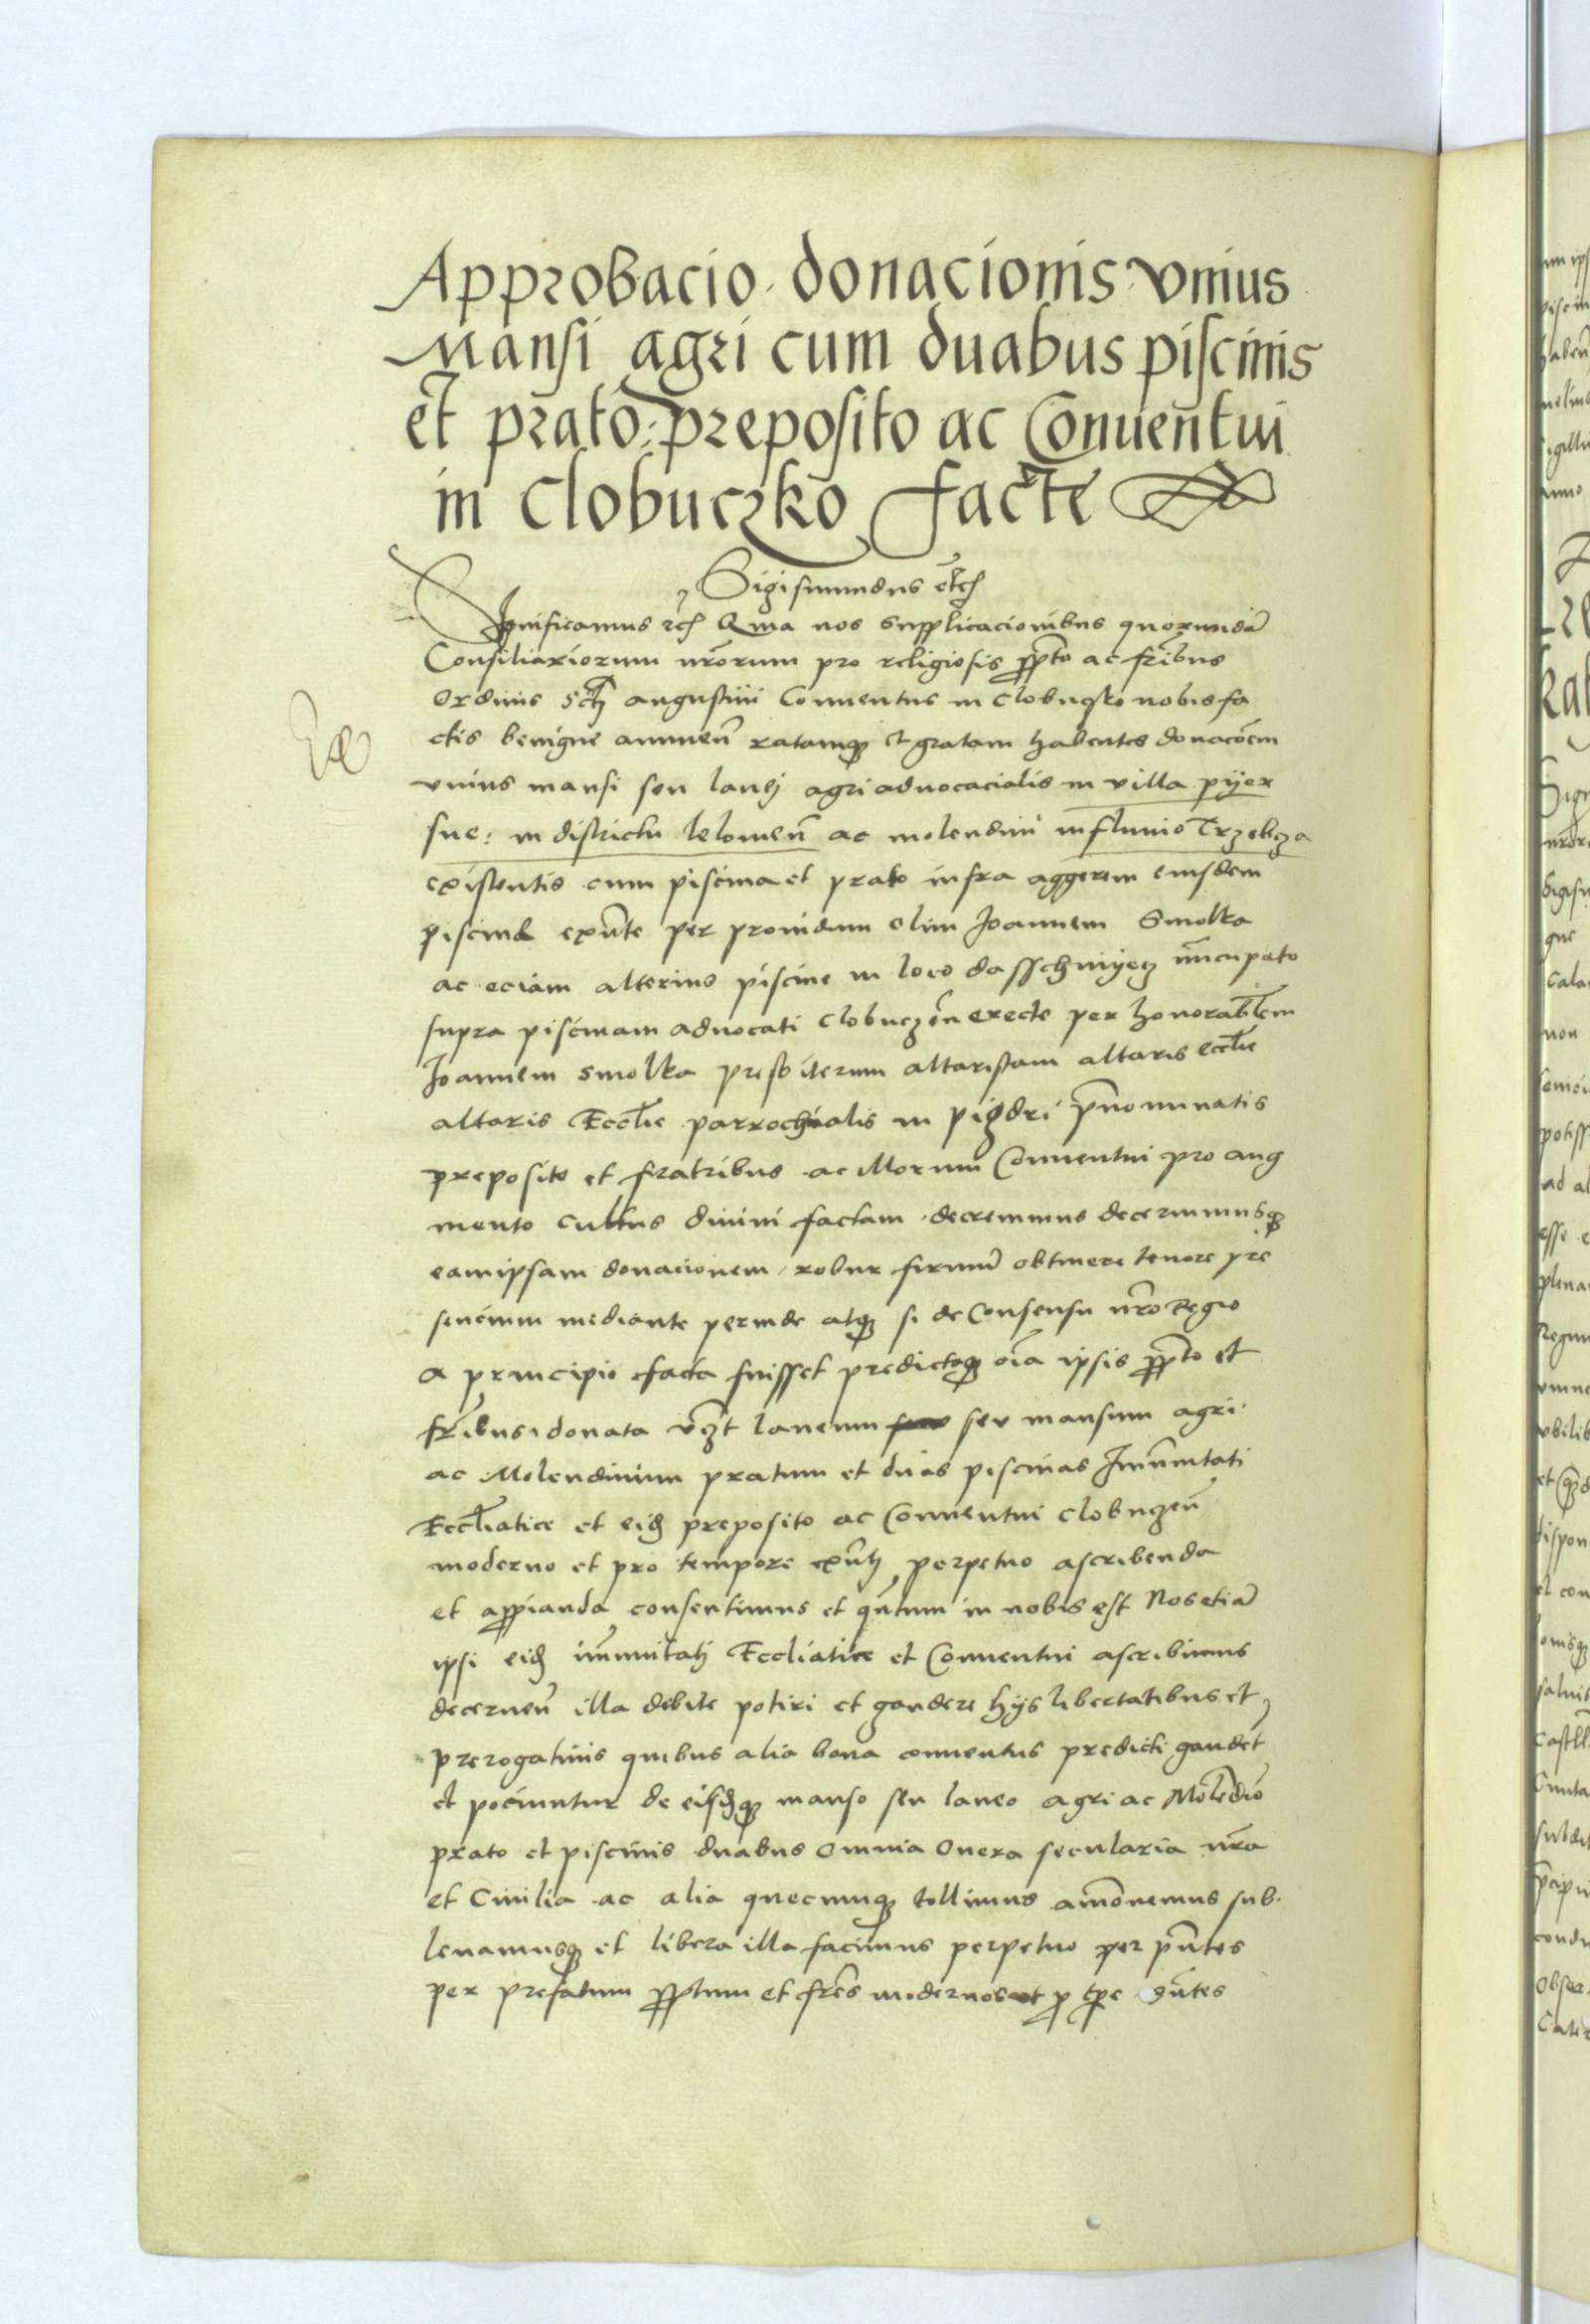 Approbacio donacionis vnius
Mansi agri cum duabus piscinis
et prato preposito ac Conuentui
in Clobuczko facte
Sigismundus etc̃
Significamus etc̃ Quia nos supplicacionibus quorundã
Consiliariorum nr̃orum pro religiosis pp̃to ac fr̃ibus
Ordinis Scti augustini Conuentus in Clobuczko nobis fa
ctis benigne annueñ ratamq; et gratam habentes donacõem
vnius mansi seu lanej agri aduocacialis in villa pijer
sne: in districtu leloueñ ac molendini in fluuio Trzebcza
existentis cum piscina et prato infra aggerem eiusdem
piscine exñte per prouidum olim Joannem Smolka
ac eciam alterius piscine in loco dasschnyecz nũcupato
supra piscinam aduocati Clobuczeñ erecte per honorabl̃em
Joannem Smolka presbiterum altaristam altaris eccl̃ie
altaris Eccl̃ie parrochialis in pizdri p̃nominatis
preposito et fratribus ac illorum Conuentui pro aug
mento cultus diuini factam decreuimus decernimusq;
eamipsam donacionem robur firmũ obtinere tenore pre
senciũm mediante perinde atq; si de Consensu nr̃o Regio
a principio facta fuisset predictaq; oĩa ipsis pp̃to et
fr̃ibus donata vizt laneum seu mansum agri
ac Molendinum pratum et duas piscinas Jmũnitati
Eccl̃iatice et eid. preposito ac Conuentui Clobuczeñ
moderno et pro tempore exñti perpetuo ascribenda
et app̃ianda consentimus et qñtum in nobis est Nos etiã
ipsi eid. im̃unitati Eccl̃iatice et Conuentui ascribimus
decerneñ illa debite potiri et gaudere hijs libertatibus et
prerogatiuis quibus alia bona conuentus predicti gaudẽt
et pociuntur de eisdq; manso seu laneo agri ac Molẽdiõ
prato et piscinis duabus Omnia Onera secularia nr̃a
et Ciuilia ac alia quecunq; tollimus amõuemus sub
leuamusq; et libera illa facimus perpetuo per p̃ntes
per prefatum pp̃tum et fr̃es modernos et p tp̃e exñtes